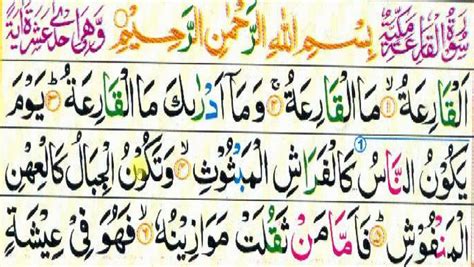 سُوْرَةُ الْقَارِعَةِ مَكِّيَّةٌ بِسْمِ اللهِ الرَّحْمٰنِ الرَّحِيْمِ وَهِيَ اِحْدٰى عَشْرَةَ اٰيَةً
اَلْقَارِعَةُ ۙ۱ مَا الْقَارِعَةُ ۚ۲ وَمَاۤ اَدْرٰىكَ مَا الْقَارِعَةُ ؕ۳ يَوْمَ
يَكُوْنُ النَّاسُ كَالْفَرَاشِ الْمَبْثُوْثِ ۙ۴ وَتَكُوْنُ الْجِبَالُ كَالْعِهْنِ
الْمَنْفُوْشِ ؕ۵ فَاَمَّا مَنْ ثَقُلَتْ مَوَازِيْنُهٗ ۙ۶ فَهُوَ فِيْ عِيْشَةٍ